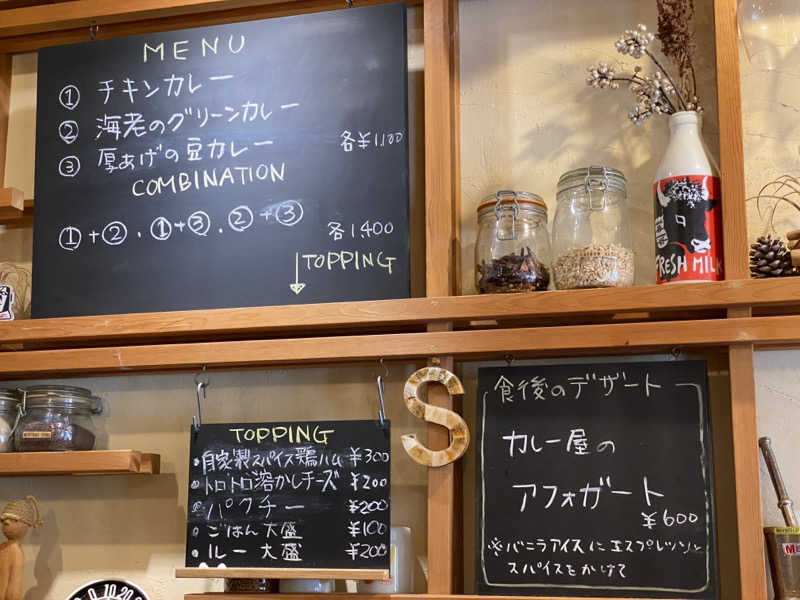 MENU
① チキンカレー
② 海老のグリーンカレー
③ 厚あげの豆カレー
各¥1,100
COMBINATION
①+②、①+③、②+③
各1,400
↓TOPPING
FRESH MILK
TOPPING
・自家製スパイス鶏ハム ¥300
・トロトロ溶かしチーズ ¥200
・パクチー ¥200
・ごはん大盛 ¥100
・ルー大盛 ¥200
S
食後のデザート
カレー屋の
アフォガート
¥600
※バニラアイスにエスプレッソと
スパイスをかけて